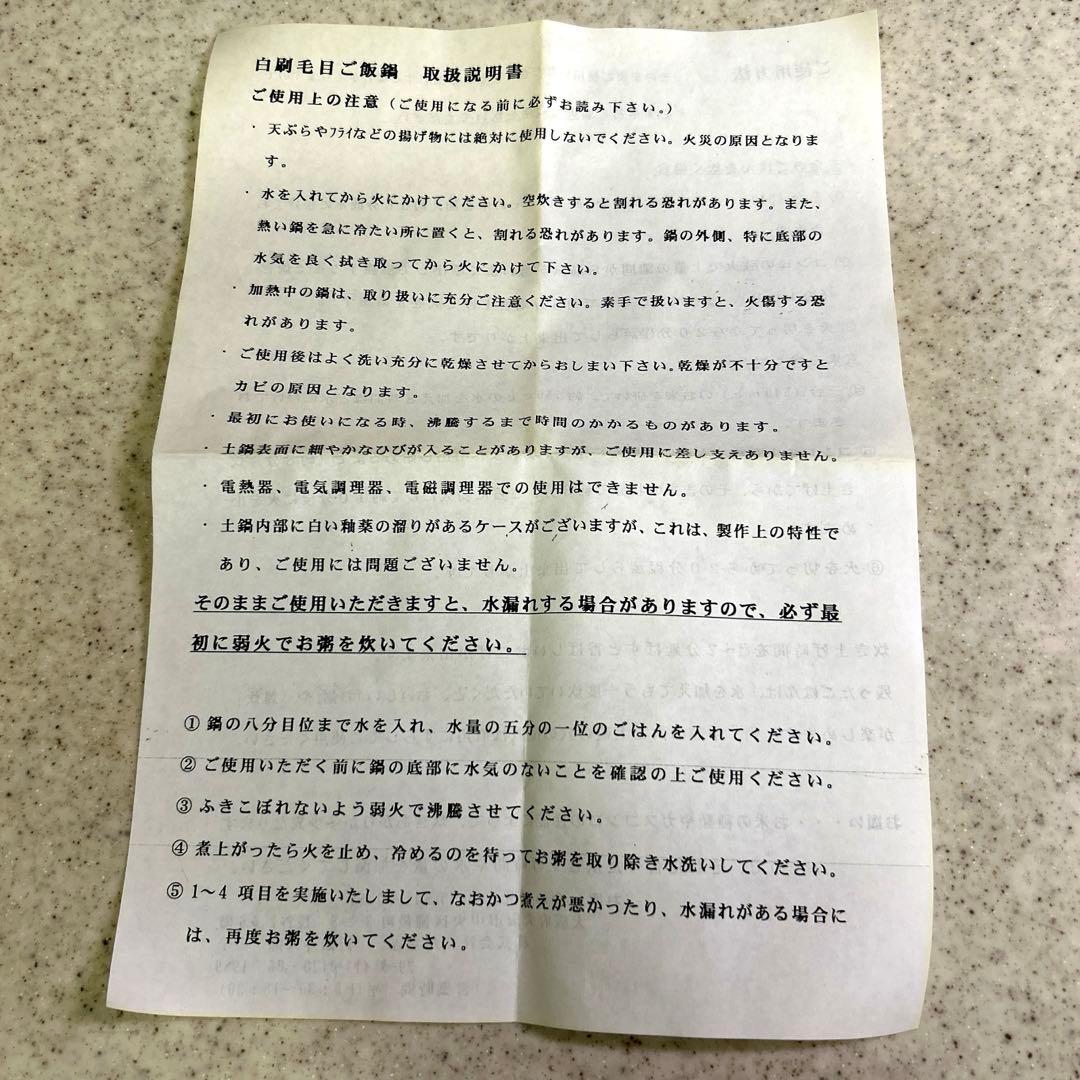 白刷毛目ご飯鍋　取扱説明書
ご使用上の注意（ご使用になる前に必ずお読み下さい。）
・天ぷらやﾌﾗｲなどの揚げ物には絶対に使用しないでください。火災の原因となりま
す。
・水を入れてから火にかけてください。空炊きすると割れる恐れがあります。また、
熱い鍋を急に冷たい所に置くと、割れる恐れがあります。鍋の外側、特に底部の
水気を良く拭き取ってから火にかけて下さい。
・加熱中の鍋は、取り扱いに充分ご注意ください。素手で扱いますと、火傷する恐
れがあります。
・ご使用後はよく洗い充分に乾燥させてからおしまい下さい。乾燥が不十分ですと
カビの原因となります。
・最初にお使いになる時、沸騰するまで時間のかかるものがあります。
・土鍋表面に細やかなひびが入ることがありますが、ご使用に差し支えありません。
・電熱器、電気調理器、電磁調理器での使用はできません。
・土鍋内部に白い釉薬の溜りがあるケースがございますが、これは、製作上の特性で
あり、ご使用には問題ございません。
そのままご使用いただきますと、水漏れする場合がありますので、必ず最
初に弱火でお粥を炊いてください。
① 鍋の八分目位まで水を入れ、水量の五分の一位のごはんを入れてください。
② ご使用いただく前に鍋の底部に水気のないことを確認の上ご使用ください。
③ ふきこぼれないよう弱火で沸騰させてください。
④ 煮上がったら火を止め、冷めるのを待ってお粥を取り除き水洗いしてください。
⑤ 1～4 項目を実施いたしまして、なおかつ煮えが悪かったり、水漏れがある場合に
は、再度お粥を炊いてください。